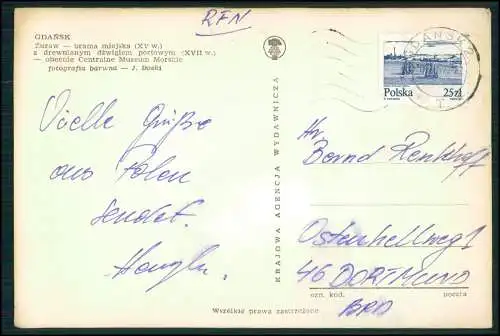 RFN
GDAŃSK
Żuraw — brama miejska (XV w.)
z drewnianym dźwigiem portowym (XVII w.)
— obecnie Centralne Muzeum Morskie
fotografia barwna — J.
Vielle Grüße
aus Polen
sendet
KRAJOWA AGENCJA WYDAWNICZA
GDAŃSK 2
Polska 25 zł
Hr.
Bernd Renkhoff
Ostenhellweg 1
46 DORTMUND
ozn. kod. poczta
BRD
Wszelkie prawa zastrzeżone